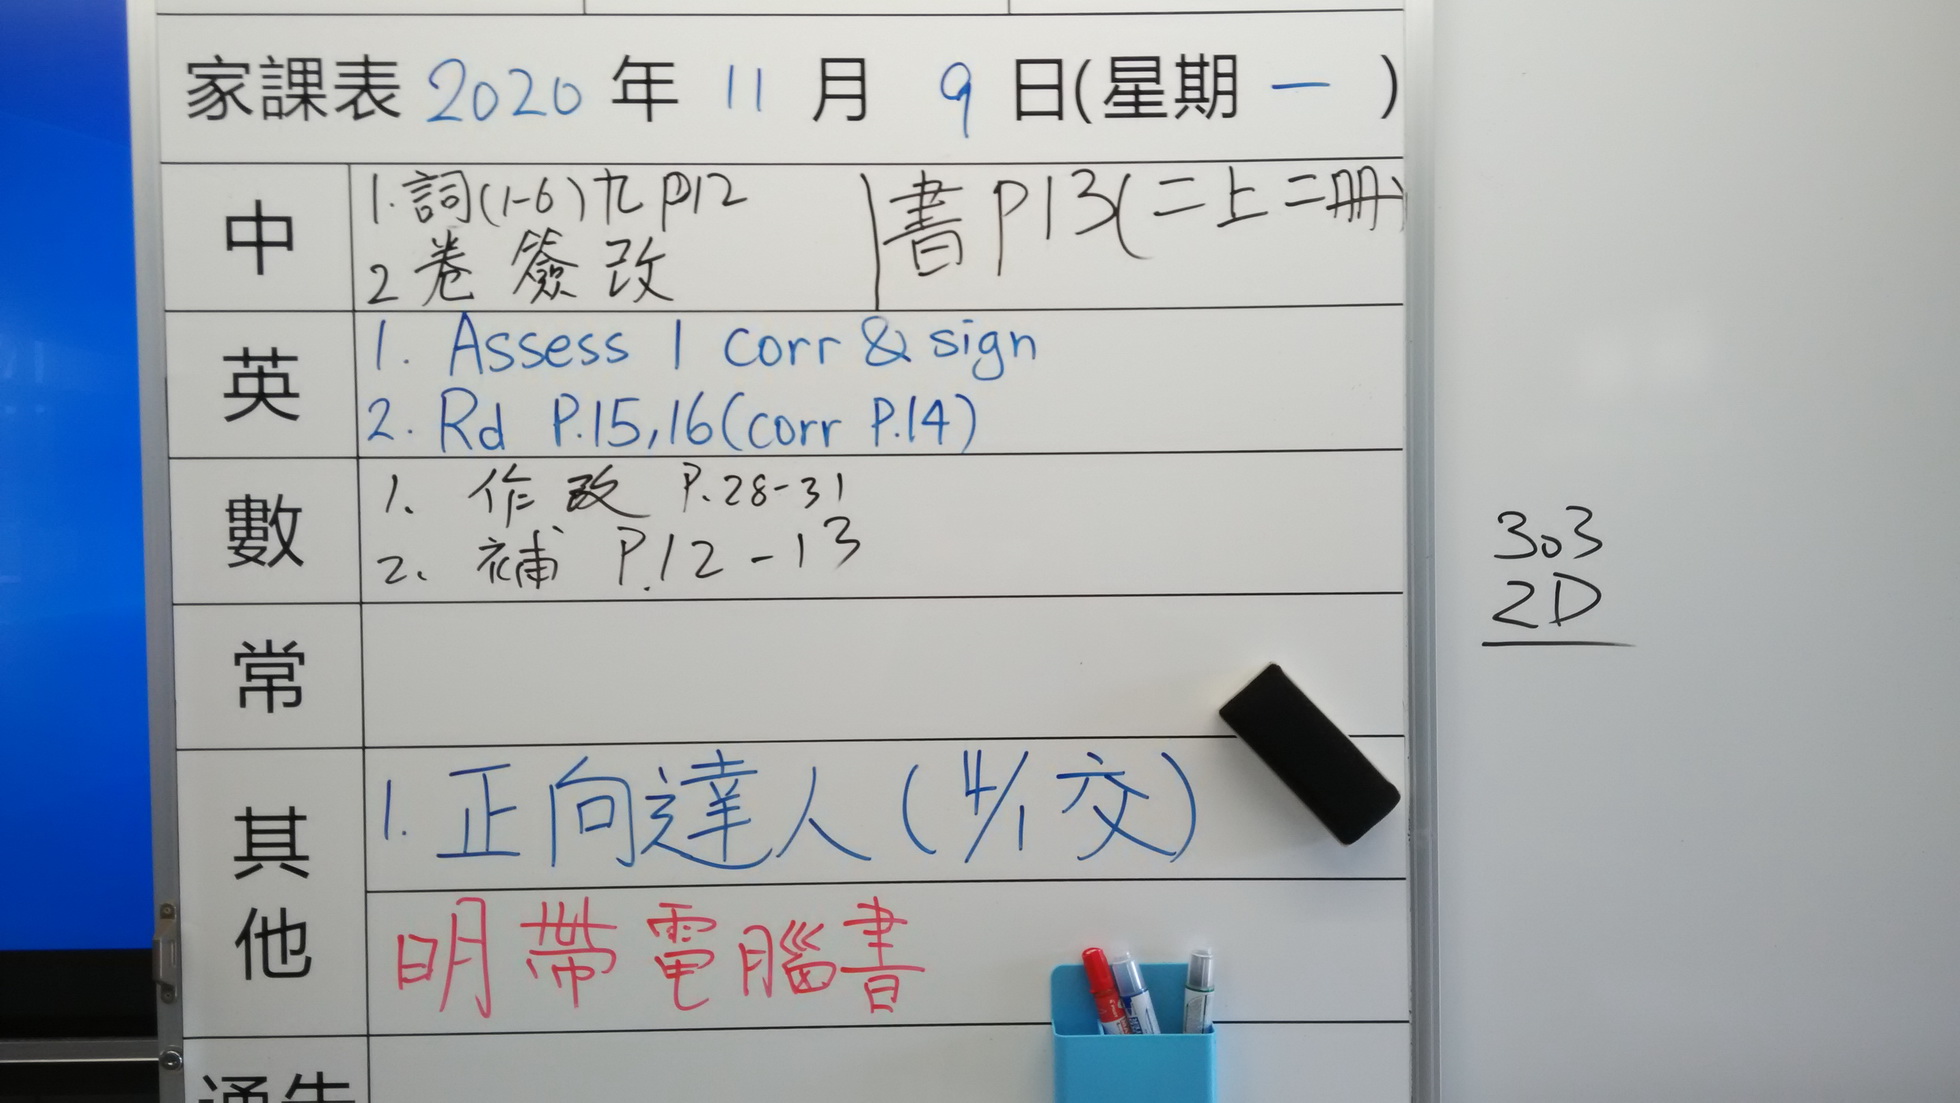 家課表 2020 年 11 月 9 日(星期 一 )
中
1. 詞(1-6)九 P12
2 卷 簽 改
書 P13(二上二冊)
英
1. Assess 1 corr & sign
2. Rd P.15,16(corr P.14)
數
1. 作 改 P.28-31
2. 補 P.12-13
常
其他
1. 正向達人(4/1交)
明帶電腦書
通告
303
2D